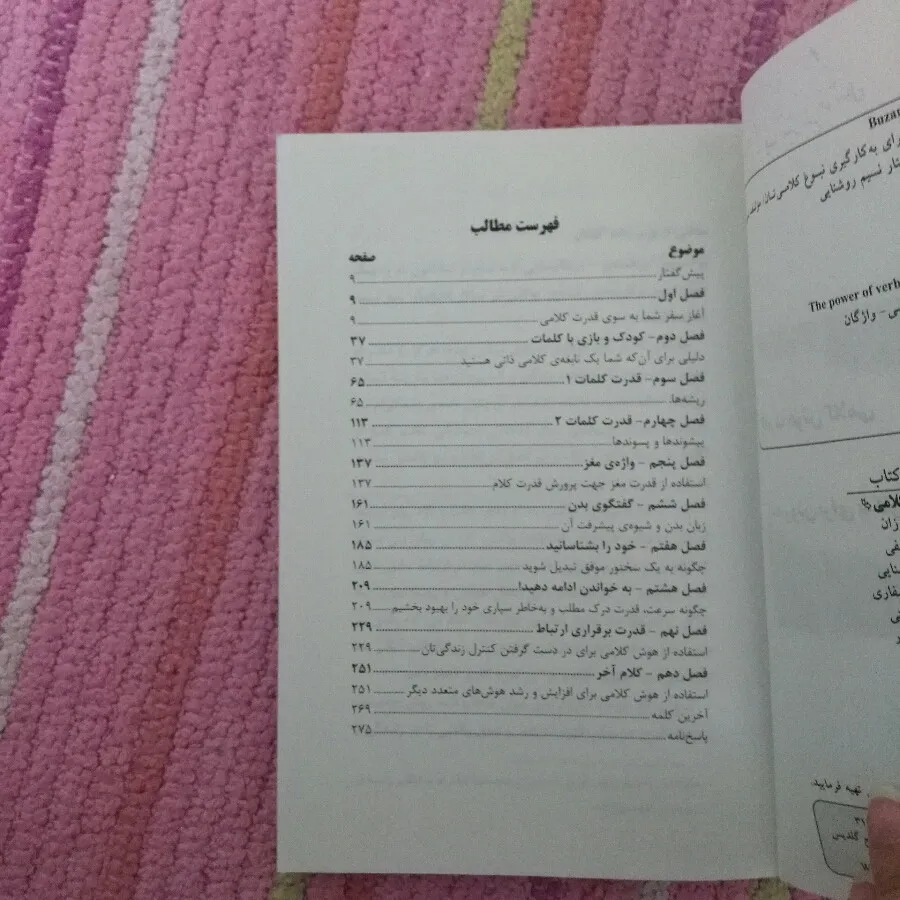 فهرست مطالب
موضوع صفحه
پیش‌گفتار ۹
فصل اول ۹
آغاز سفر شما به سوی قدرت کلامی ۹
فصل دوم- کودک و بازی با کلمات ۳۷
دلیلی برای آن‌که شما یک نابغه‌ی کلامی ذاتی هستید ۳۷
فصل سوم- قدرت کلمات ۱ ۶۵
ریشه‌ها ۶۵
فصل چهارم- قدرت کلمات ۲ ۱۱۳
پیشوندها و پسوندها ۱۱۳
فصل پنجم - واژه‌ی مغز ۱۳۷
استفاده از قدرت مغز جهت پرورش قدرت کلام ۱۳۷
فصل ششم - گفتگوی بدن ۱۶۱
زبان بدن و شیوه‌ی پیشرفت آن ۱۶۱
فصل هفتم - خود را بشناسانید ۱۸۵
چگونه به یک سخنور موفق تبدیل شوید ۱۸۵
فصل هشتم - به خواندن ادامه دهید! ۲۰۹
چگونه سرعت، قدرت درک مطلب و به‌خاطر سپاری خود را بهبود بخشیم ۲۰۹
فصل نهم - قدرت برقراری ارتباط ۲۲۹
استفاده از هوش کلامی برای در دست گرفتن کنترل زندگی‌تان ۲۲۹
فصل دهم - کلام آخر ۲۵۱
استفاده از هوش کلامی برای افزایش و رشد هوش‌های متعدد دیگر ۲۵۱
آخرین کلمه ۲۶۹
پاسخ‌نامه ۲۷۵
Buza
رای به‌کارگیری نبوغ کلامی‌تان
نسیم روشنایی
The power of verb
سی - واژگان
کتاب
کلامی
ژان
نایی
فاری
تهیه فرمایید.
۳۱
گلدیس